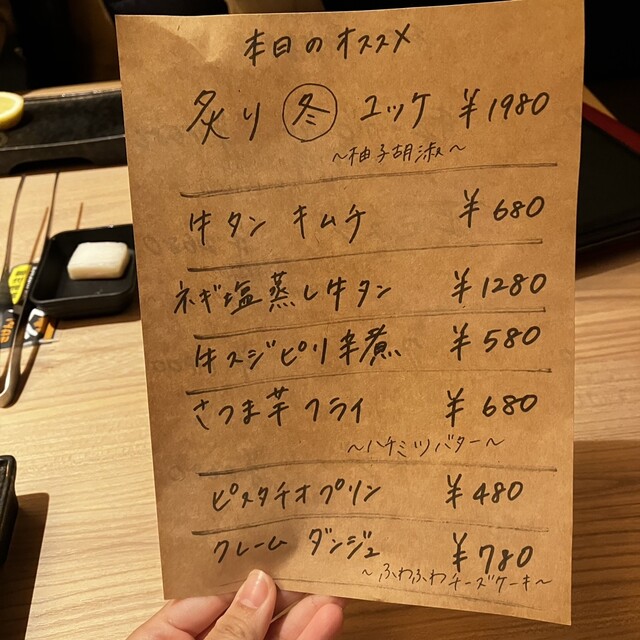 本日のオススメ
炙り 冬 ユッケ ¥1980
～柚子胡淑～
牛タン キムチ ¥680
ネギ塩蒸し牛タン ¥1280
牛スジピリ辛煮 ¥580
さつま芋フライ ¥680
～ハチミツバター～
ピスタチオプリン ¥480
クレーム ダンジュ ¥780
～ふわふわチーズケーキ～